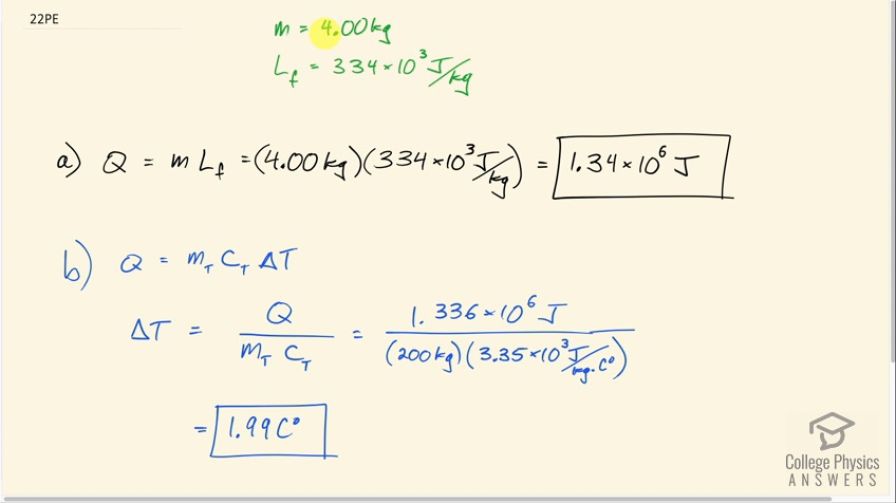 22PE
m = 4.00 kg
L_f = 334 × 10³ J/kg
a) Q = m L_f = (4.00 kg)(334 × 10³ J/kg) = 1.34 × 10⁶ J
b) Q = m_T C_T ΔT
ΔT = Q / m_T C_T = 1.336 × 10⁶ J / (200 kg)(3.35 × 10³ J/kg·C°)
= 1.99 C°
College Physics
ANSWERS